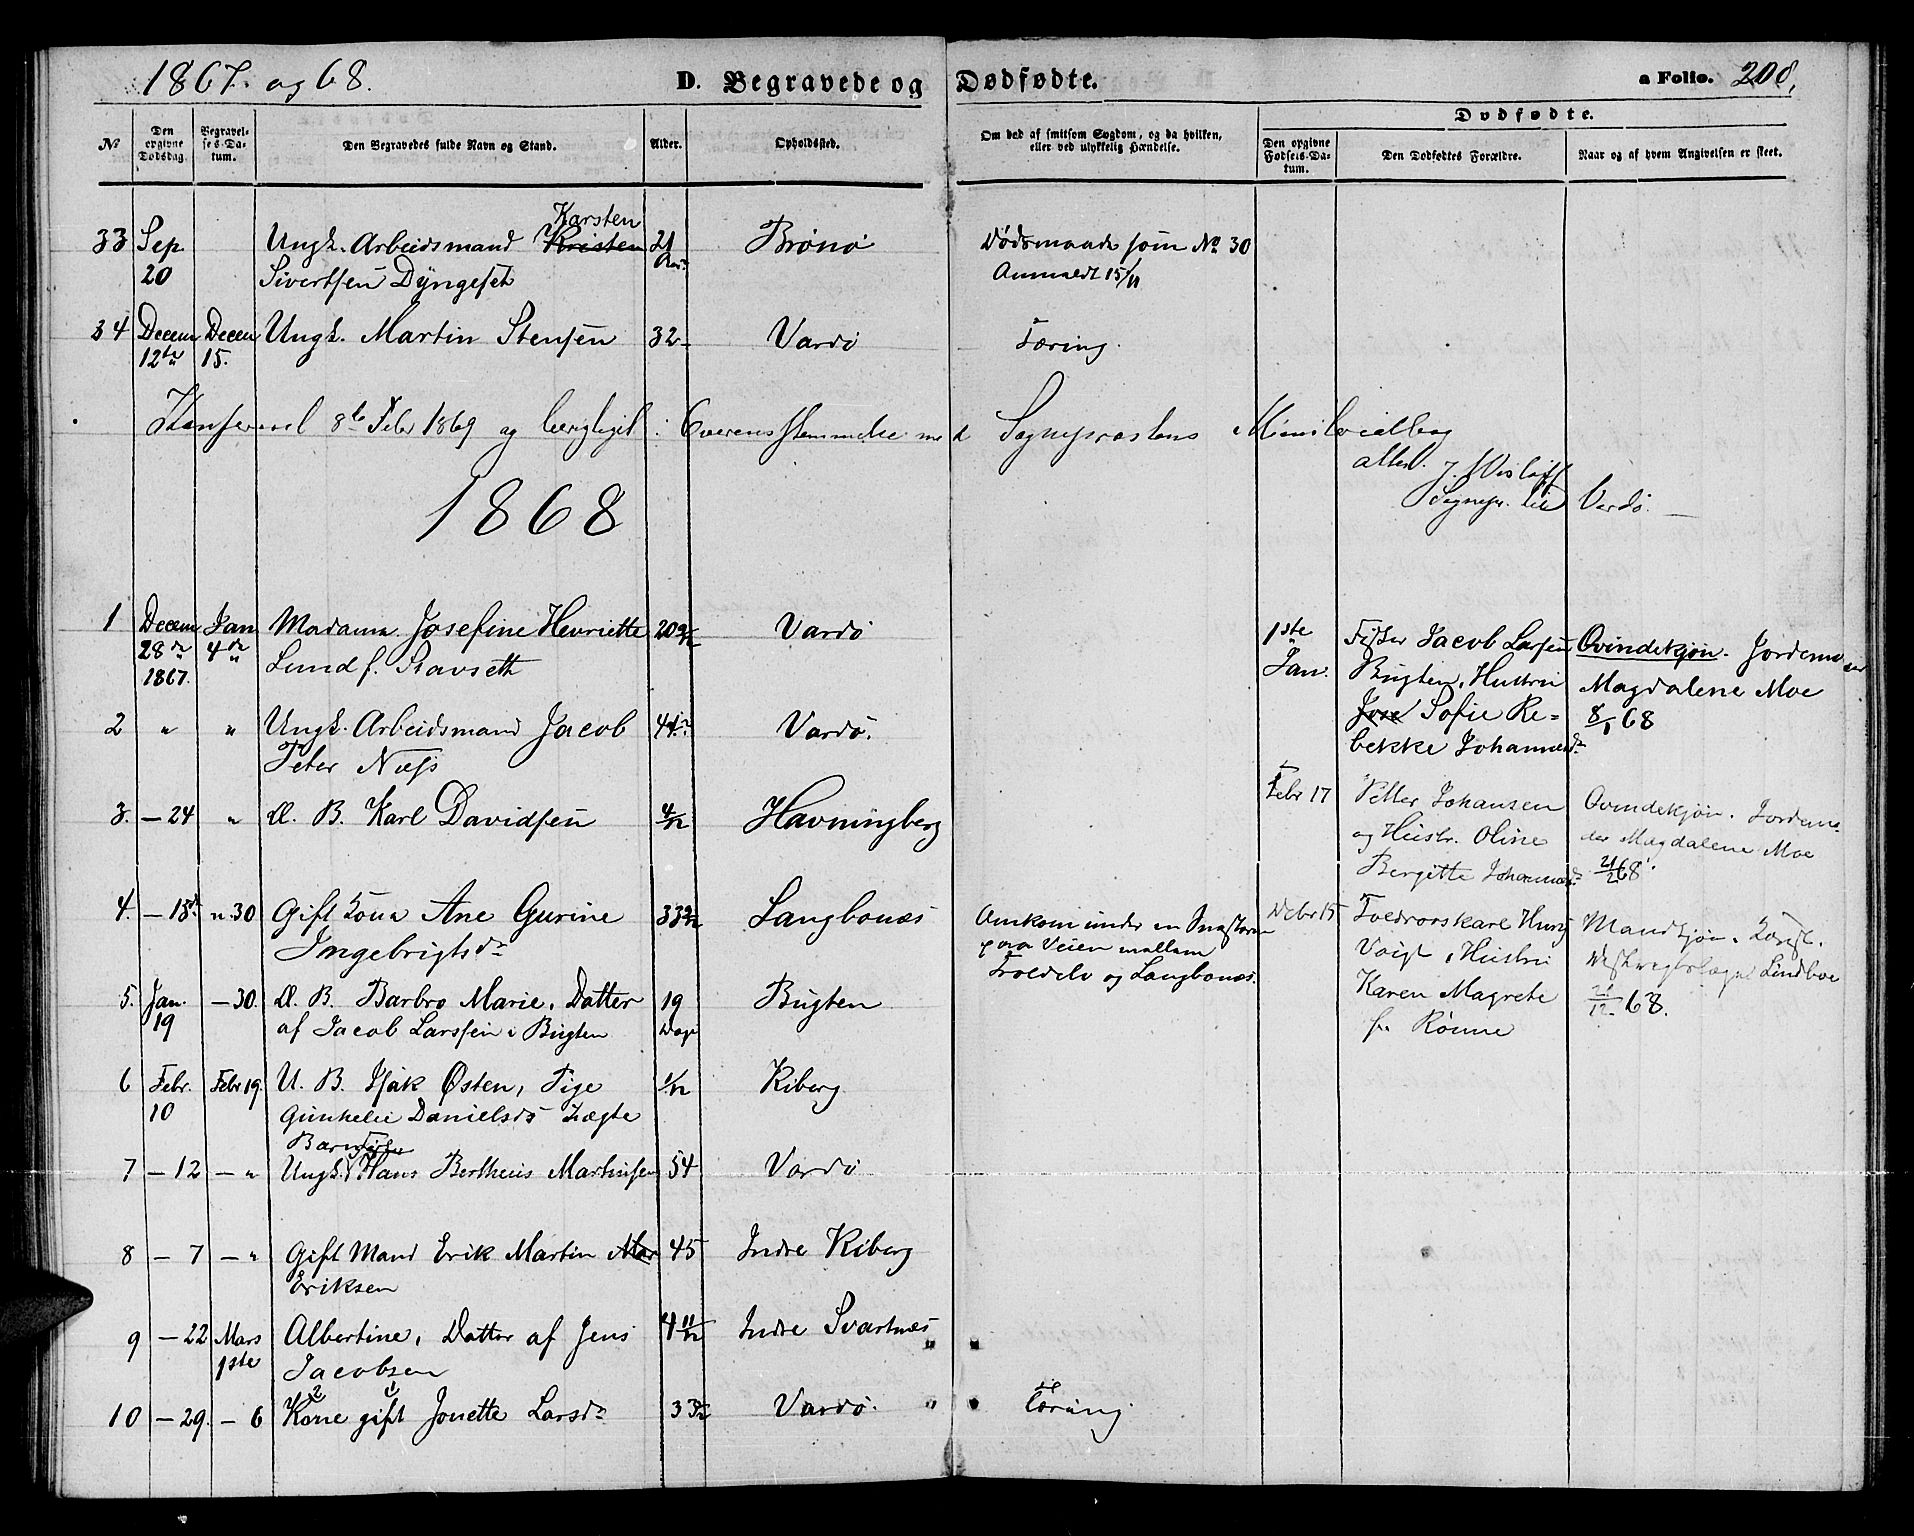 1867. og 68.
D. Begravede og Dødfødte.
a Folio. 208,
No
Den opgivne Dødsdag.
Begravelses-Datum.
Den Begravedes fulde Navn og Stand.
Alder.
Opholdssted.
Om død af smitsom Sygdom, og da hvilken, eller ved ulykkelig Hændelse.
Dødfødte.
Den opgivne Fødsels-Datum.
Den Dødfødtes Forældre.
Naar og af hvem Angivelsen er skeet.
Karsten
33 Sep Ungk. Arbeidsmand Kristen 21 Brønø Dødsmaade som No 30
20 Sivertsen Dyngeset Aar Anmeldt 15/11
34 Decem Decem Ungk. Martin Stensen 32 Vardø Tæring.
12te 15.
Konfereret 8de Febr 1869 og berigtiget i Overensstemmelse med Sognepræstens Ministerialbog
attest. J. Wisløff
Sognepr. til Vardø.
1868
1 Decem Jan Madame Josefine Henriette 20 9/12 Vardø
28de 4de Lund f. Ravseth
1867.
2 " " Ungk. Arbeidsmand Jacob 44 Vardø.
Peter Næss
3. – 24 " Æ. B. Karl Davidsen 4/12 Havningberg
4. – 18de " 30 Gift Kone Ane Gurine 33 Langbonæs Omkom under en Snestorm
Ingebrigtsdr paa Veien mellem
Troldelv og Langbonæs.
5. Jan. – 30. Æ. B. Barbro Marie, Datter 19 Bugten
19 af Jacob Larssen i Bugten Dage
6 Febr. Febr 19. U. B. Isak Østen, Pige 1/12 Kiberg
10 Gunhele Danielsds Ægte
Barn Fisker
7 – 12 – " Ungk. Hans Bertheus Martinsen 54 Vardø
8 – 7 – " Gift Mand Erik Martin Mar 45 Indre Kiberg
Eriksen
9 – 22 Mars Albertine, Datter af Jens 4 11/12 Indre Svartnæs
1ste Jacobsen
10 – 29. – 6 Kone gift Jonette Larsdr 33 Vardø. Tæring.
2 1
1ste Fisker Jacob Larsen Qvindekjøn. Jordemoder
Jan. Bugten, Hustru Magdalene Moe
Jose Sofie Re= 8/1 68
bekke Johannesdr
Febr 17 Petter Johansen Qvindekjøn. Jordemo=
og Hustr. Oline der Magdalene Moe
Bergitte Johannesdr 21/2 68
Debr 15 Toldrorskarl Hans Mandkjøn. Kongl.
Voigt, Hustru Distriktslæge Lindboe
Karen Magrete 21/12 68.
f. Rønne